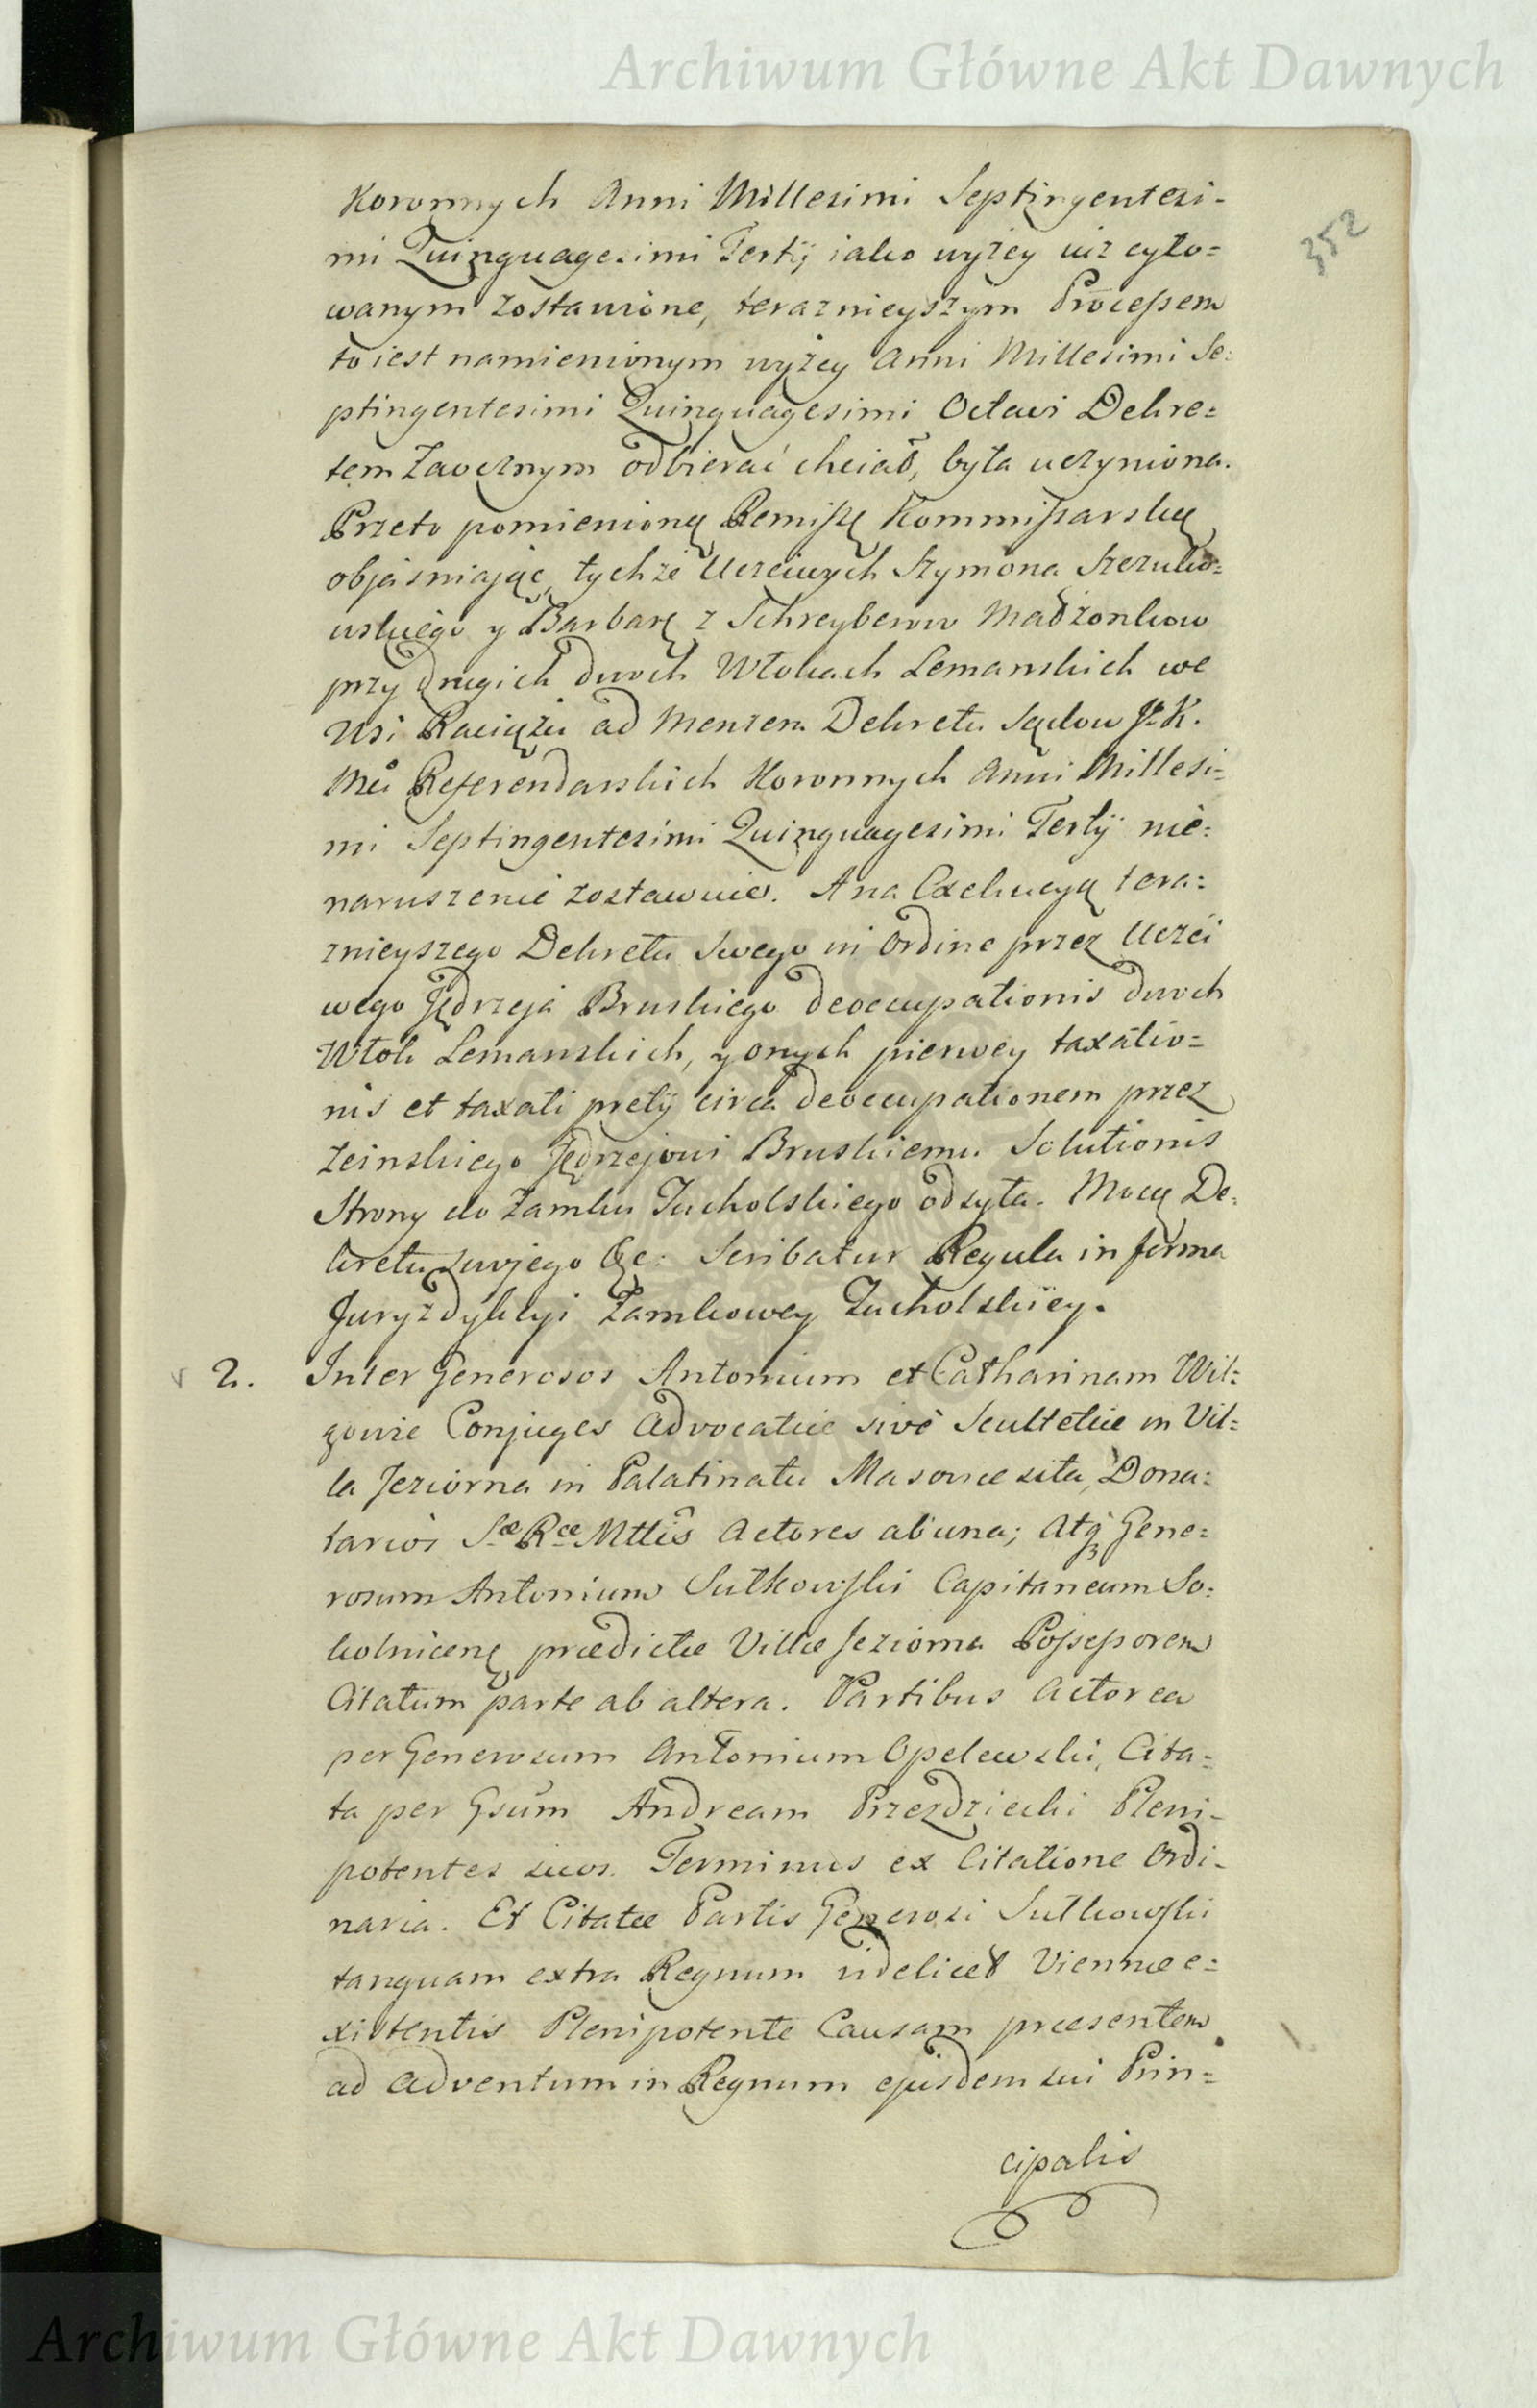 Archiwum Główne Akt Dawnych
352
Koronnych Anni Millesimi Septingentesi-
mi Quinquagesimi Tertij iako wyżey iuż cyto=
wanym zostawione, teraznieyszym Processem
to iest namienionym wyżey Anni Millesimi Se=
ptingentesimi Quinquagesimi Octavi Dekre=
tem Zaocznym odbierać chciał, była uczyniona.
Przeto pomienioną Remissę Kommissarską
objaśniając, tychże Uczciwych Szymona Szczuko=
wskiego y Barbarę z Schreyberow Małżonkow
przy drugich dwoch Włokach Lemanskich we
Wsi Raciążu ad mentem Dekretu Sądow J. K.
Mci Referendarskich Koronnych Anni Millesi=
mi Septingentesimi Quinquagesimi Tertij nie=
naruszenie zostawuie. A na Exekucyą tera=
znieyszego Dekretu Swego in Ordine przez Uczci
wego Jędrzeja Bruskiego deoccupationis dwoch
Włok Lemanskich, y onych pierwey taxatio=
nis et taxati pretij circa deoccupationem przez
Zeinskiego Jędrzejowi Bruskiemu Solutionis
Strony do Zamku Tucholskiego odsyła. Mocą De=
kretu swojego &c: Scribatur Regula in forma
Juryzdykcyi Zamkowey Tucholskiey.
2. Inter Generosos Antonium et Catharinam Wil=
gowie Conjuges Advocatiae sivè Scultetiae in Vil=
la Jeziorna in Palatinatu Masoviae sita, Dona=
tarios Sae Rae Mttis Actores ab una; Atq Gene=
rosum Antonium Sułkowski Capitaneum So=
kolnicenę praedictae Villae Jeziorna Possessorem
Citatum parte ab altera. Partibus Actorea
per Generosum Antonium Opelewski, Cita=
ta per Gsum Andream Przezdziecki Pleni-
potentes suos. Terminus ex Citatione Ordi-
naria. Et Citatae Partis Generosi Sułkowski
tanquam extra Regnum videlicet Viennae e=
xistentis Plenipotente Causam praesentem
ad adventum in Regnum ejusdem sui Prin=
cipalis
Archiwum Główne Akt Dawnych